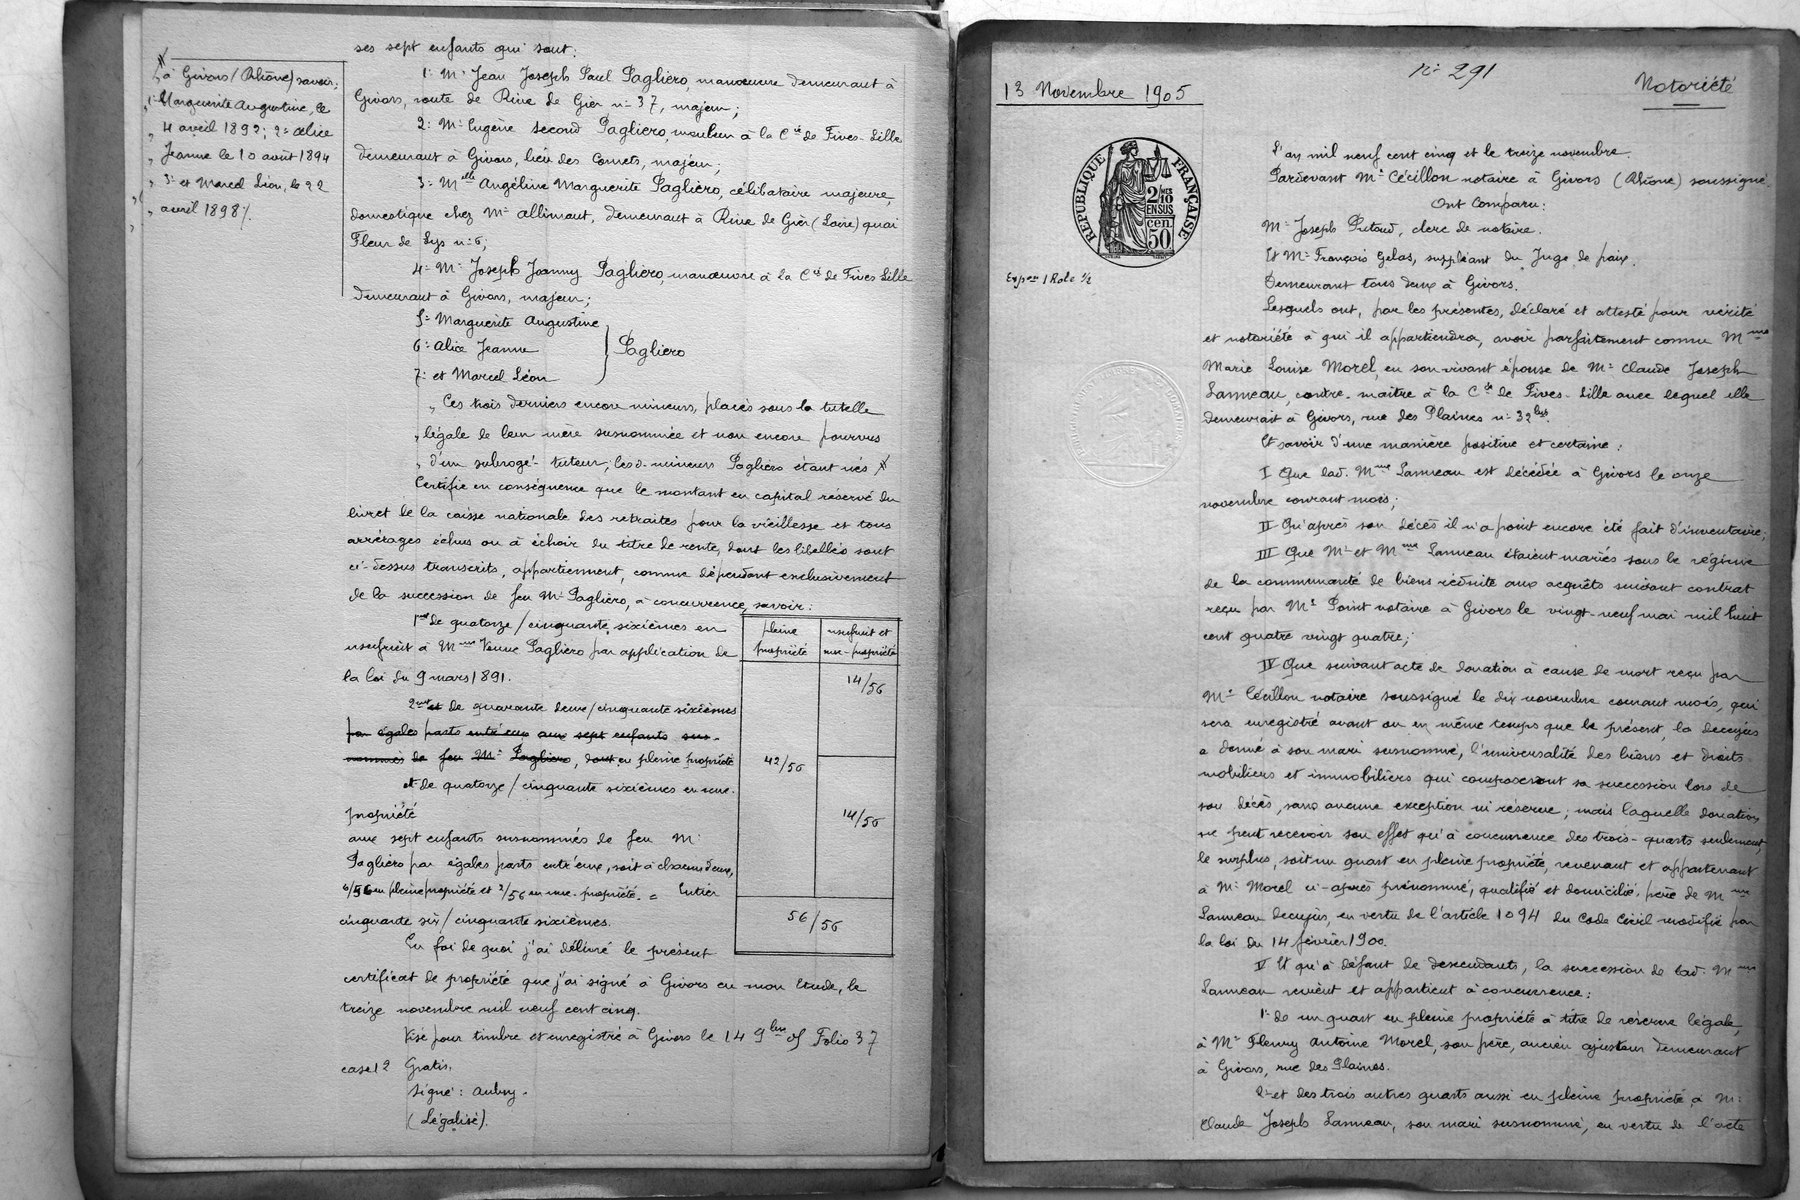 ses sept enfants qui sont:
1º Mr Jean Joseph Paul Pagliero, manœuvre demeurant à
Givors, route de Rive de Gier nº 37, majeur;
2º Mr Eugène second Pagliero, mouleur à la Cie de Fives-Lille
demeurant à Givors, lieu des Cornets, majeur;
3º Melle Angéline Marguerite Pagliero, célibataire majeure,
domestique chez Mr Allimant, demeurant à Rive de Gier (Loire) quai
Fleur de Lys nº 6;
4º Mr Joseph Joanny Pagliero, manœuvre à la Cie de Fives Lille
demeurant à Givors, majeur;
5º Marguerite Augustine
6º Alice Jeanne
7º et Marcel Léon
Pagliero
„ Ces trois derniers encore mineurs, placés sous la tutelle
„ légale de leur mère susnommée et non encore pourvus
„ d'un subrogé-tuteur; les d. mineurs Pagliero étant nés
à Givors (Rhône) savoir;
1º Marguerite Augustine, le
„ 4 avril 1892; 2º Alice
„ Jeanne le 10 août 1894
„ 3º et Marcel Léon, le 22
„ avril 1898/.
Certifie en conséquence que le montant en capital réservé du
livret de la caisse nationale des retraites pour la vieillesse et tous
arrérages échus ou à échoir du titre de rente, dont les libellés sont
ci-dessus transcrits, appartiennent, comme dépendant exclusivement
de la succession de feu Mr Pagliero, à concurrence, savoir:
1ment De quatorze/cinquante sixièmes en
usufruit à Mme Veuve Pagliero par application de
la loi du 9 mars 1891.
2ment et de quarante deux/cinquante sixièmes
par égales parts entr'eux aux sept enfants sus-
nommés de feu Mr Pagliero, dont en pleine propriété
et de quatorze/cinquante sixièmes en nue-
propriété
aux sept enfants susnommés de feu Mr
Pagliero par égales parts entr'eux, soit à chacun d'eux,
6/56 en pleine propriété et 2/56 en nue-propriété. = Entier
cinquante six/cinquante sixièmes.
pleine
propriété
usufruit et
nue-propriété
14/56
42/56
14/56
56/56
En foi de quoi j'ai délivré le présent
certificat de propriété que j'ai signé à Givors en mon Etude, le
treize novembre mil neuf cent cinq.
Visé pour timbre et enregistré à Givors le 14 9bre 05 Folio 37
case 12 Gratis.
Signé: Aubry.
(Légalisé).
Nº 291
13 Novembre 1905
Notoriété
RÉPUBLIQUE FRANÇAISE
2/10
EN SUS
50 cen.
Expon 1 Role 1/2
L'an mil neuf cent cinq et le treize novembre.
Pardevant Me Cécillon notaire à Givors (Rhône) soussigné.
Ont Comparu:
Mr Joseph Putoud, clerc de notaire.
Et Mr François Gelas, suppléant du Juge de paix.
Demeurant tous deux à Givors.
Lesquels ont, par les présentes, déclaré et attesté pour vérité
et notoriété à qui il appartiendra, avoir parfaitement connu Mme
Marie Louise Morel, en son vivant épouse de Mr Claude Joseph
Lanneau, contre-maître à la Cie de Fives-Lille avec lequel elle
demeurait à Givors, rue des Plaines nº 32 bis.
Et savoir d'une manière positive et certaine:
I Que lad. Mme Lanneau est décédée à Givors le onze
novembre courant mois;
II Qu'après son décès il n'a point encore été fait d'inventaire;
III Que Mr et Mme Lanneau étaient mariés sous le régime
de la communauté de biens réduite aux acquêts suivant contrat
reçu par Me Point notaire à Givors le vingt-neuf mai mil huit
cent quatre vingt quatre;
IV Que suivant acte de donation à cause de mort reçu par
Me Cécillon notaire soussigné le dix novembre courant mois, qui
sera enregistré avant ou en même temps que le présent, la decujus
a donné à son mari susnommé, l'universalité des biens et droits
mobiliers et immobiliers qui composeront sa succession lors de
son décès, sans aucune exception ni réserve; mais laquelle donation
ne peut recevoir son effet qu'à concurrence des trois-quarts seulement,
le surplus, soit un quart en pleine propriété, revenant et appartenant
à Mr Morel ci-après prénommé, qualifié et domicilié, père de Mme
Lanneau decujus, en vertu de l'article 1094 du Code Civil modifié par
la loi du 14 février 1900.
V Et qu'à défaut de descendants, la succession de lad. Mme
Lanneau revient et appartient à concurrence:
1º de un quart en pleine propriété à titre de réserve légale,
à Mr Fleury Antoine Morel, son père, ancien ajusteur demeurant
à Givors, rue des Plaines.
2º et des trois autres quarts aussi en pleine propriété, à Mr
Claude Joseph Lanneau, son mari susnommé, en vertu de l'acte